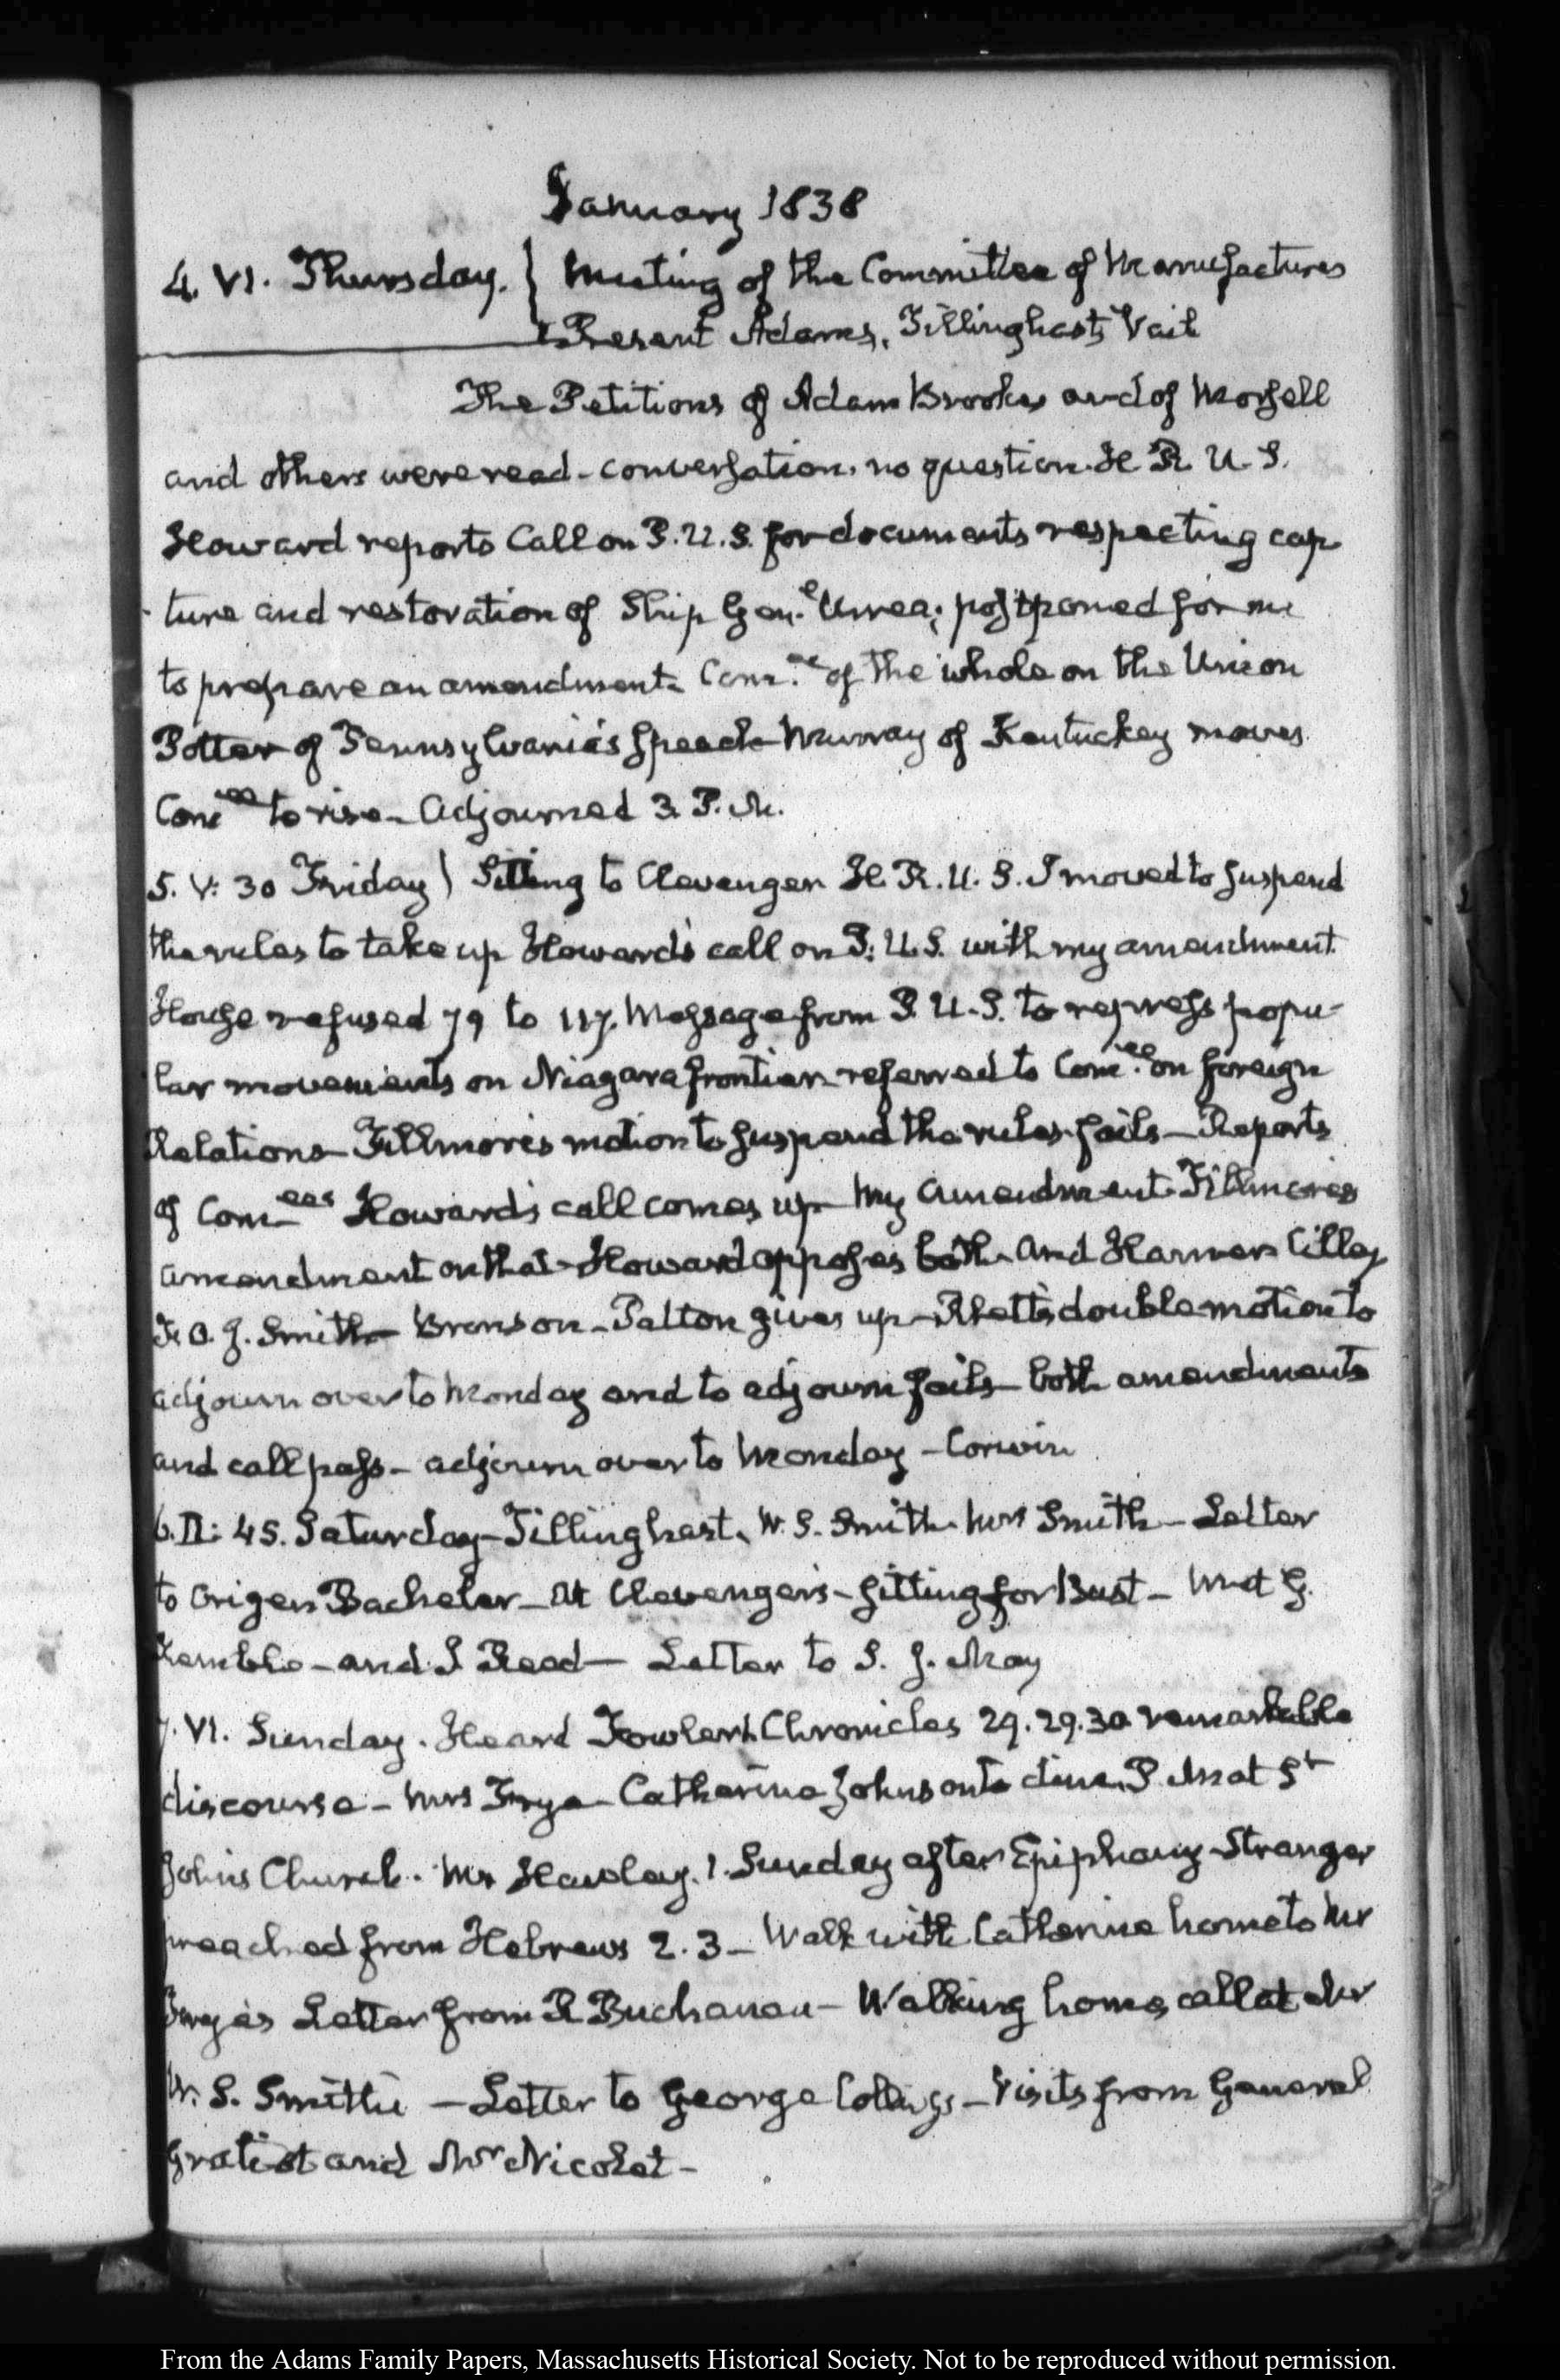 January 1838
4. VI. Thursday. } Meeting of the Committee of Manufactures
Present Adams, Tillinghast, Vail
The Petitions of Adam Brooks and of Morsell
and others were read - conversation. no question. H. R. U. S.
Howard reports Call on P. U. S. for documents respecting cap
ture and restoration of Ship Gen.l Urrea; postponed for me
to prepare an amendment. Com.ee of the whole on the Union
Potter of Pennsylvania's speech - Murray of Kentucky moves
Com.ee to rise - Adjourned 3. P. M.
5. V: 30 Friday } Sitting to Clevenger H. R. U. S. I moved to suspend
the rules to take up Howard's call on P. U. S. with my amendment
House refused 79 to 117. Message from P. U. S. to repress popu-
lar movements on Niagara frontier referred to Com.ee on foreign
Relations - Fillmore's motion to suspend the rules fails - Reports
of Com-ees Howard's call comes up - my amendment - Fillmore's
amendment on that - Howard opposes both - and Harmer Cilley
F. O. J. Smith - Bronson - Patton gives up - Rhett's double motion to
adjourn over to Monday and to adjourn fails - both amendments
and call pass - adjourn over to Monday - Corwin
6. II: 45. Saturday - Tillinghast, W. S. Smith - Mrs Smith - Letter
to Origen Bacheler - At Clevenger's - sitting for Bust - Met G.
Kemble - and S Reed - Letter to S. J. May
7. VI. Sunday. Heard Fowler 1. Chronicles 29. 29. 30. remarkable
discourse - Mrs Frye - Catherine Johnson to dine. P. M. at St
John's Church. Mr Hawley. 1. Sunday after Epiphany - Stranger
preached from Hebrews 2. 3 - Walk with Catherine home to Mr
Frye's Letter from R Buchanan - Walking home, call at Mr
W. S. Smith's - Letter to George Collings - Visits from General
Gratiot and Mr Nicolet -
From the Adams Family Papers, Massachusetts Historical Society. Not to be reproduced without permission.